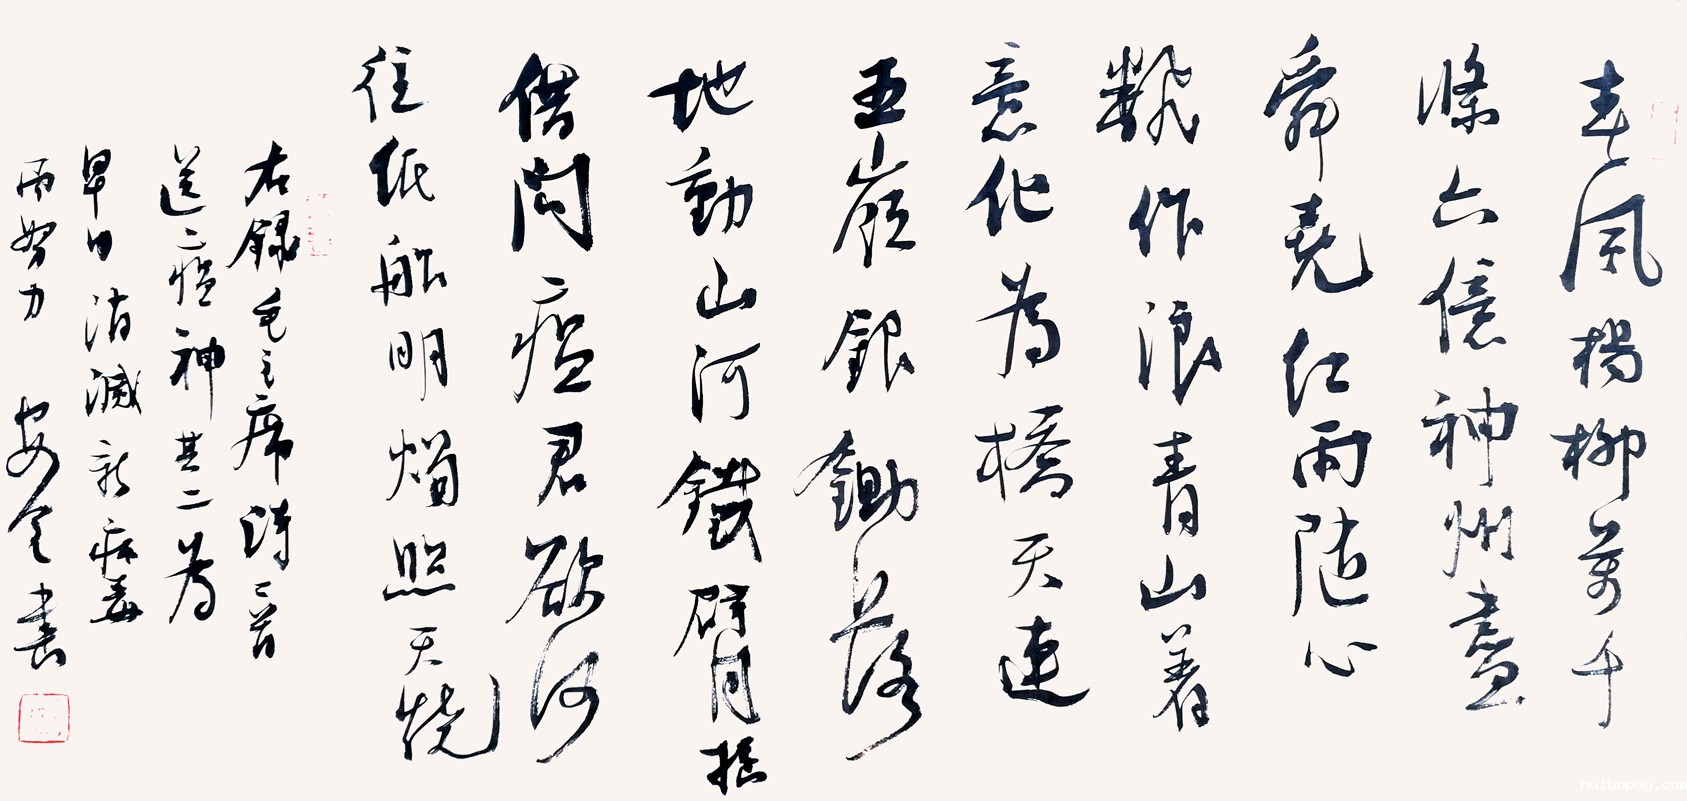 春風楊柳萬千
條六億神州盡
舜堯红雨随心
飜作浪青山着
意化為橋天連
五嶺銀鋤落
地動山河鐵臂摇
借問瘟君欲何
往纸船明燭照天燒
右録毛主席詩一首
送瘟神其二為
早日消滅新病毒
而努力 書
huibopay.com